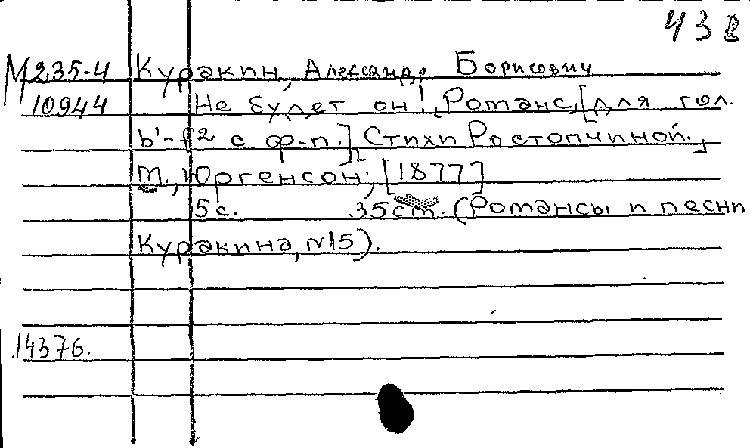 432
М235-4 Куракин, Александр Борисович
10944 Не будет он! Романс, [для гол.
b'-f2 с ф-п.], Стихи Ростопчиной.,
М., Юргенсон, [1877]
5с. 35см. (Романсы и песни
Куракина, №15).
14376.